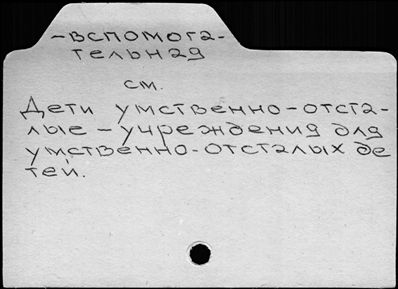 -вспомога-
тельная
см.
Дети умственно-отста-
лые - учреждения для
умственно-отсталых де
тей.